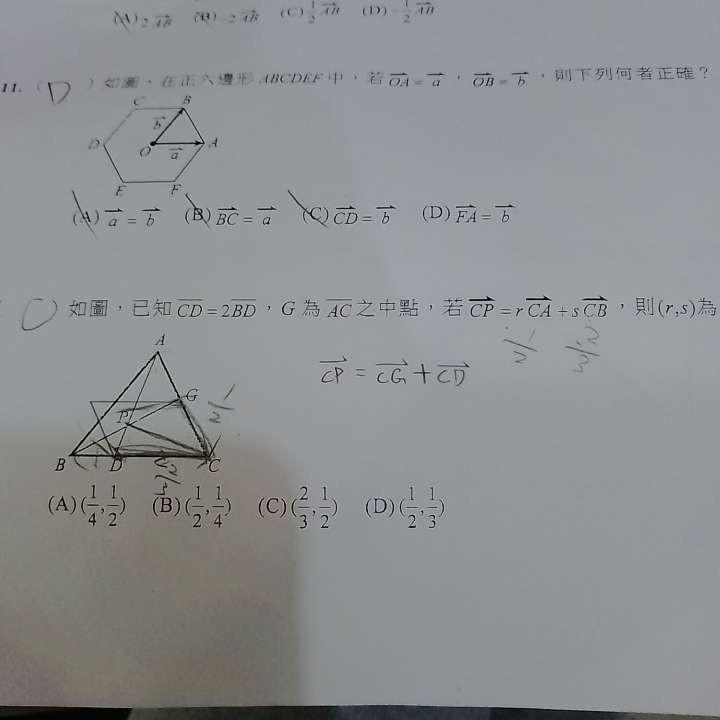 (A) 2 \overrightarrow{AB} (B) -2 \overrightarrow{AB} (C) \frac{1}{2} \overrightarrow{AB} (D) -\frac{1}{2} \overrightarrow{AB}
11. ( D ) 如圖，在正六邊形 ABCDEF 中，若 \overrightarrow{OA} = \overrightarrow{a} ， \overrightarrow{OB} = \overrightarrow{b} ，則下列何者正確？
C B
\overrightarrow{b}
D O \overrightarrow{a} A
E F
(A) \overrightarrow{a} = \overrightarrow{b} (B) \overrightarrow{BC} = \overrightarrow{a} (C) \overrightarrow{CD} = \overrightarrow{b} (D) \overrightarrow{FA} = \overrightarrow{b}
( C ) 如圖，已知 \overline{CD} = 2\overline{BD} ，G 為 \overline{AC} 之中點，若 \overrightarrow{CP} = r\overrightarrow{CA} + s\overrightarrow{CB} ，則(r,s)為
\frac{1}{2} \frac{2}{3}
A
\overrightarrow{CP} = \overrightarrow{CG} + \overrightarrow{CD}
G \frac{1}{2}
P
B D C
\frac{2}{3}
(A) (\frac{1}{4}, \frac{1}{2}) (B) (\frac{1}{2}, \frac{1}{4}) (C) (\frac{2}{3}, \frac{1}{2}) (D) (\frac{1}{2}, \frac{1}{3})